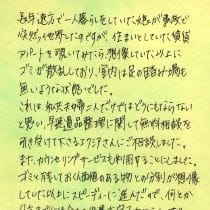 長年遠方で一人暮らしをしていた娘が事故で
突然他界したのですが、住まいとしていた賃貸
アパートを覗いてみたら、想像していた以上に
ゴミが散乱しており、室内は足の踏み場も
無いような状態でした。
これは私共夫婦二人だけではどうにもならない
と思い、早速遺品整理に関して無料相談を
引き受けて下さるフクナさんにご相談しました。
また、カウンセリングサービスも利用することにしました。
ゴミと残しておく価値のある物とが分別が想像
していた以上にスピーディーに進んだので、何とか